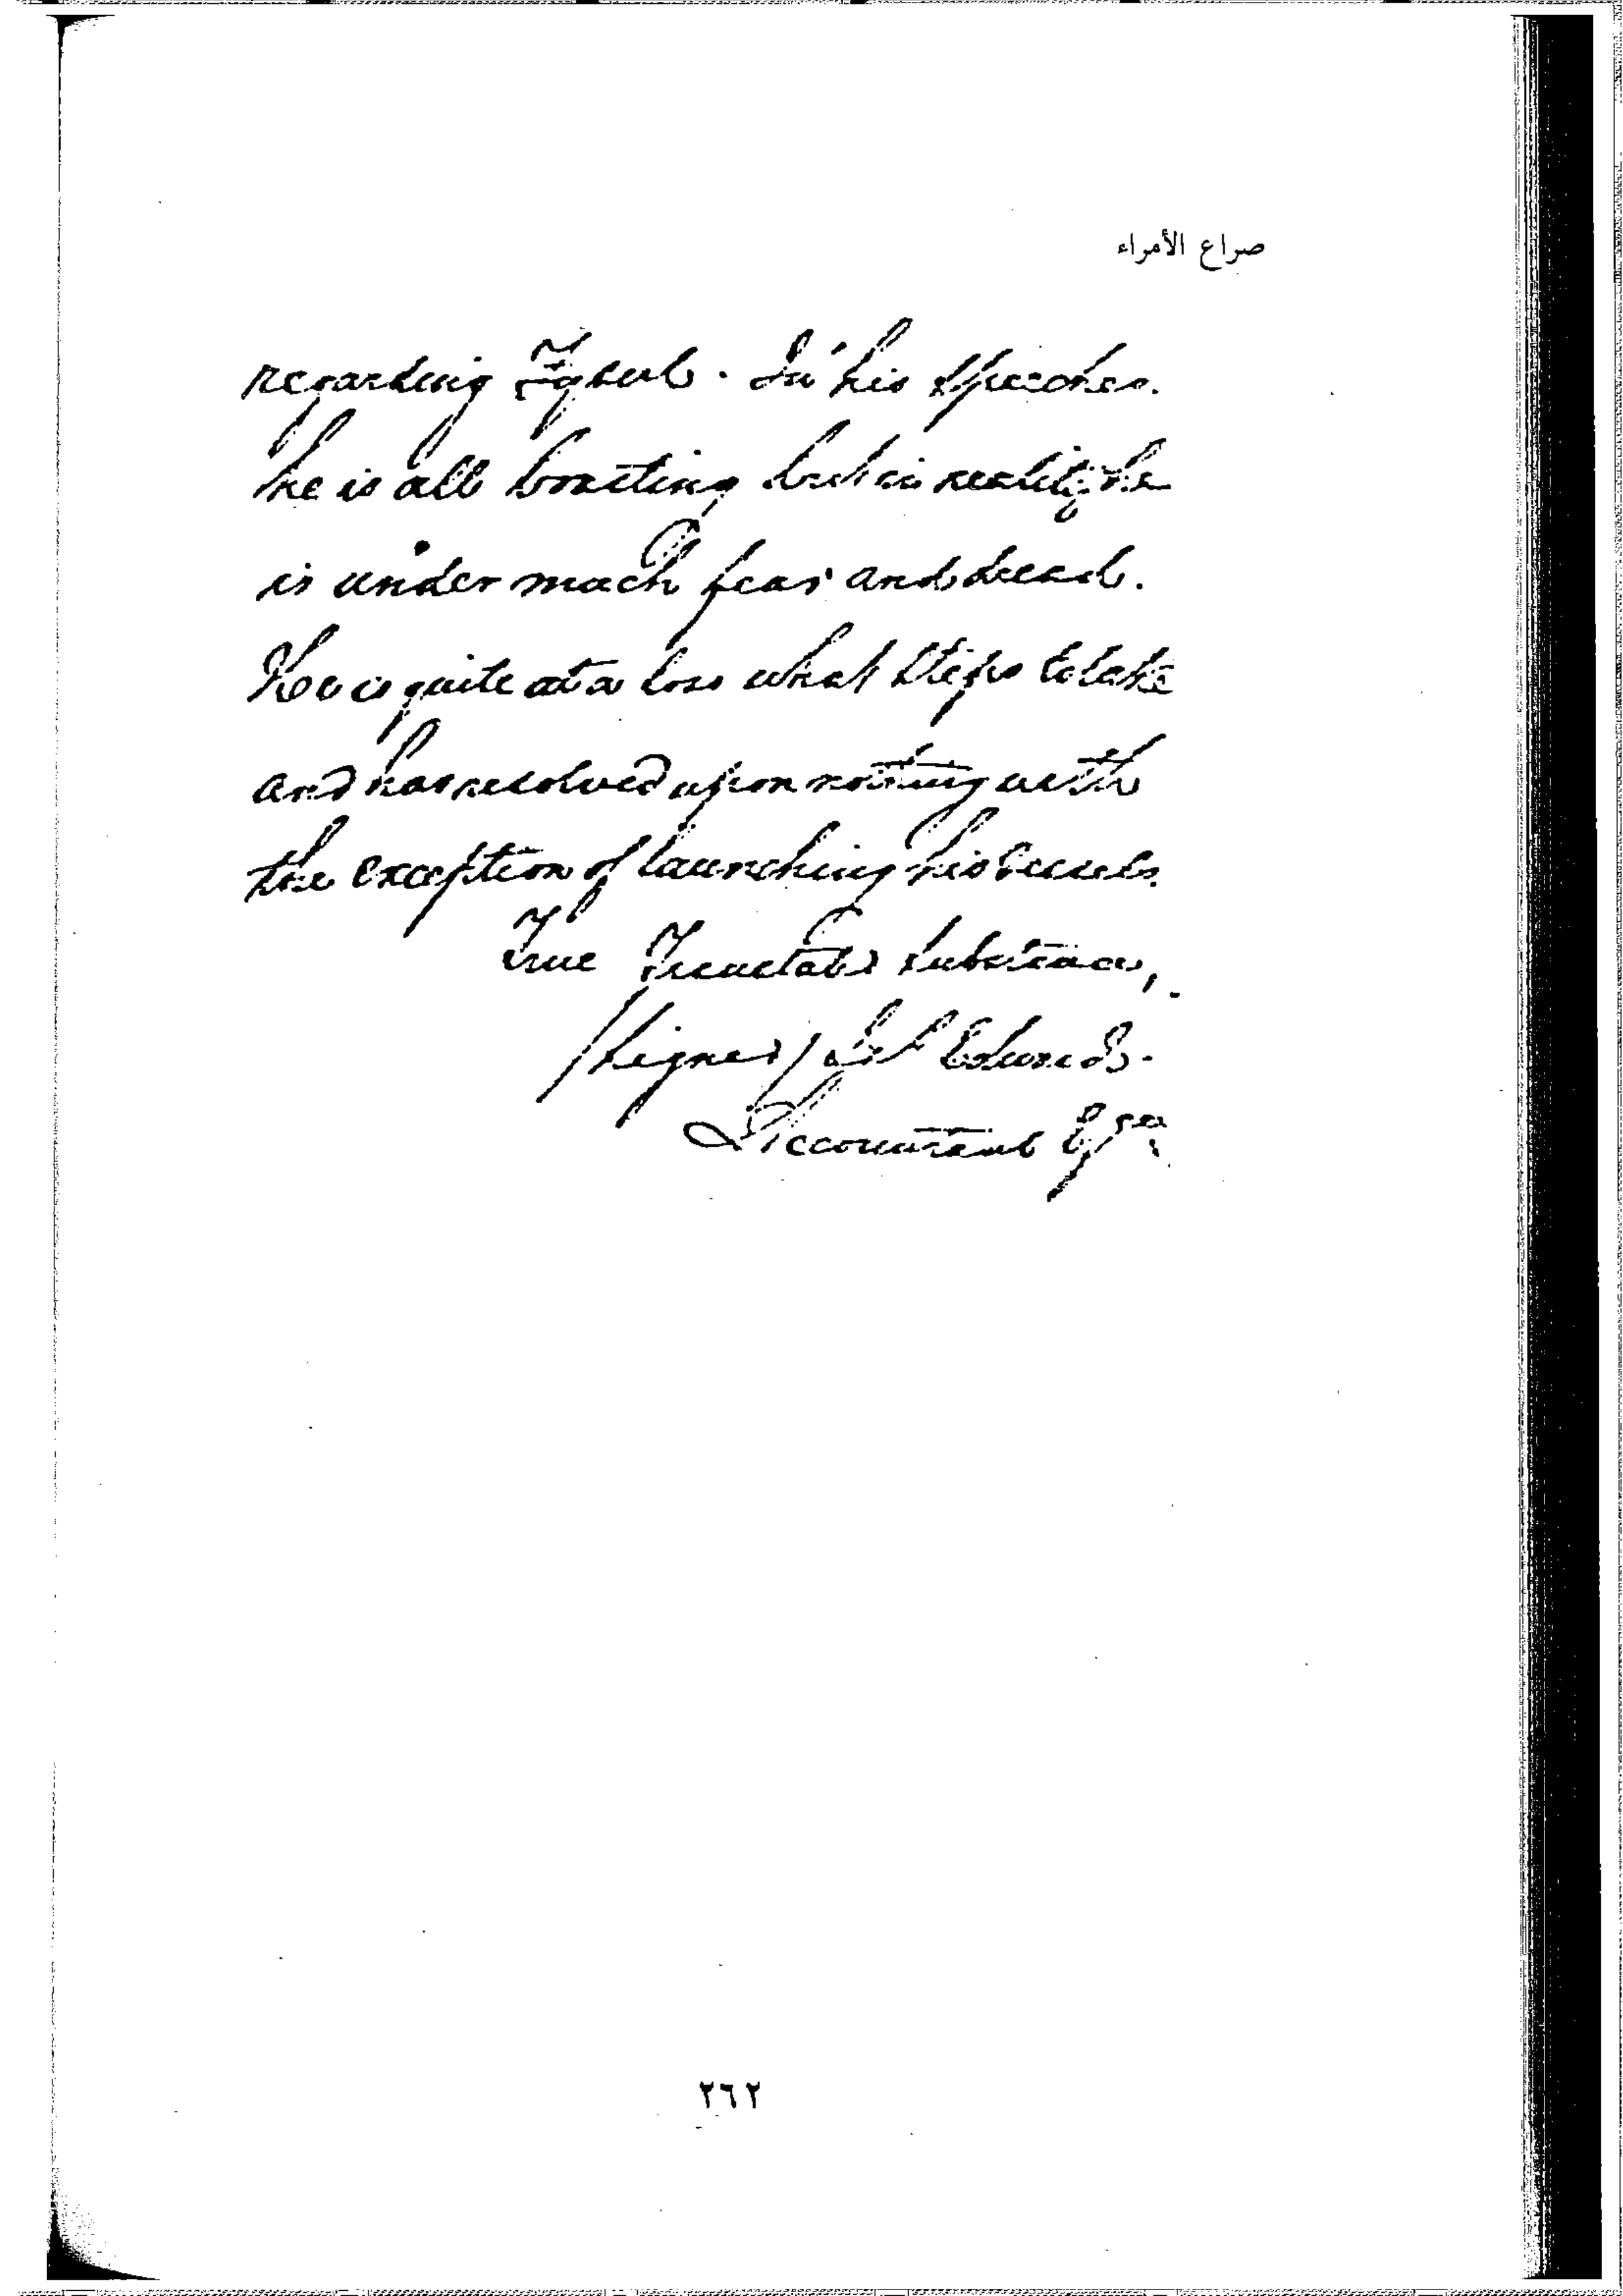 صراع الأمراء
regarding In his speeches
he is all boasting but in reality he
is under much fear and dread.
He is quite at a loss what steps to take
and has resolved upon nothing with
the exception of launching his
True Translated Substance,
/Signed/ Edwards.
Accountant
٢٦٢